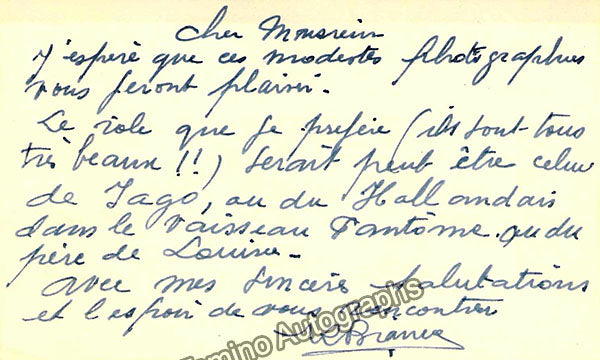 Cher Monsieur
J'espère que ces modestes photographies
vous feront plaisir.
Le rôle que je préfère (ils sont tous
très beaux !!) serait peut être celui
de Iago, ou du Hollandais
dans le Vaisseau Fantôme ou du
père de Louise.
Avec mes sincères salutations
et l'espoir de vous rencontrer
Tamino Autographs